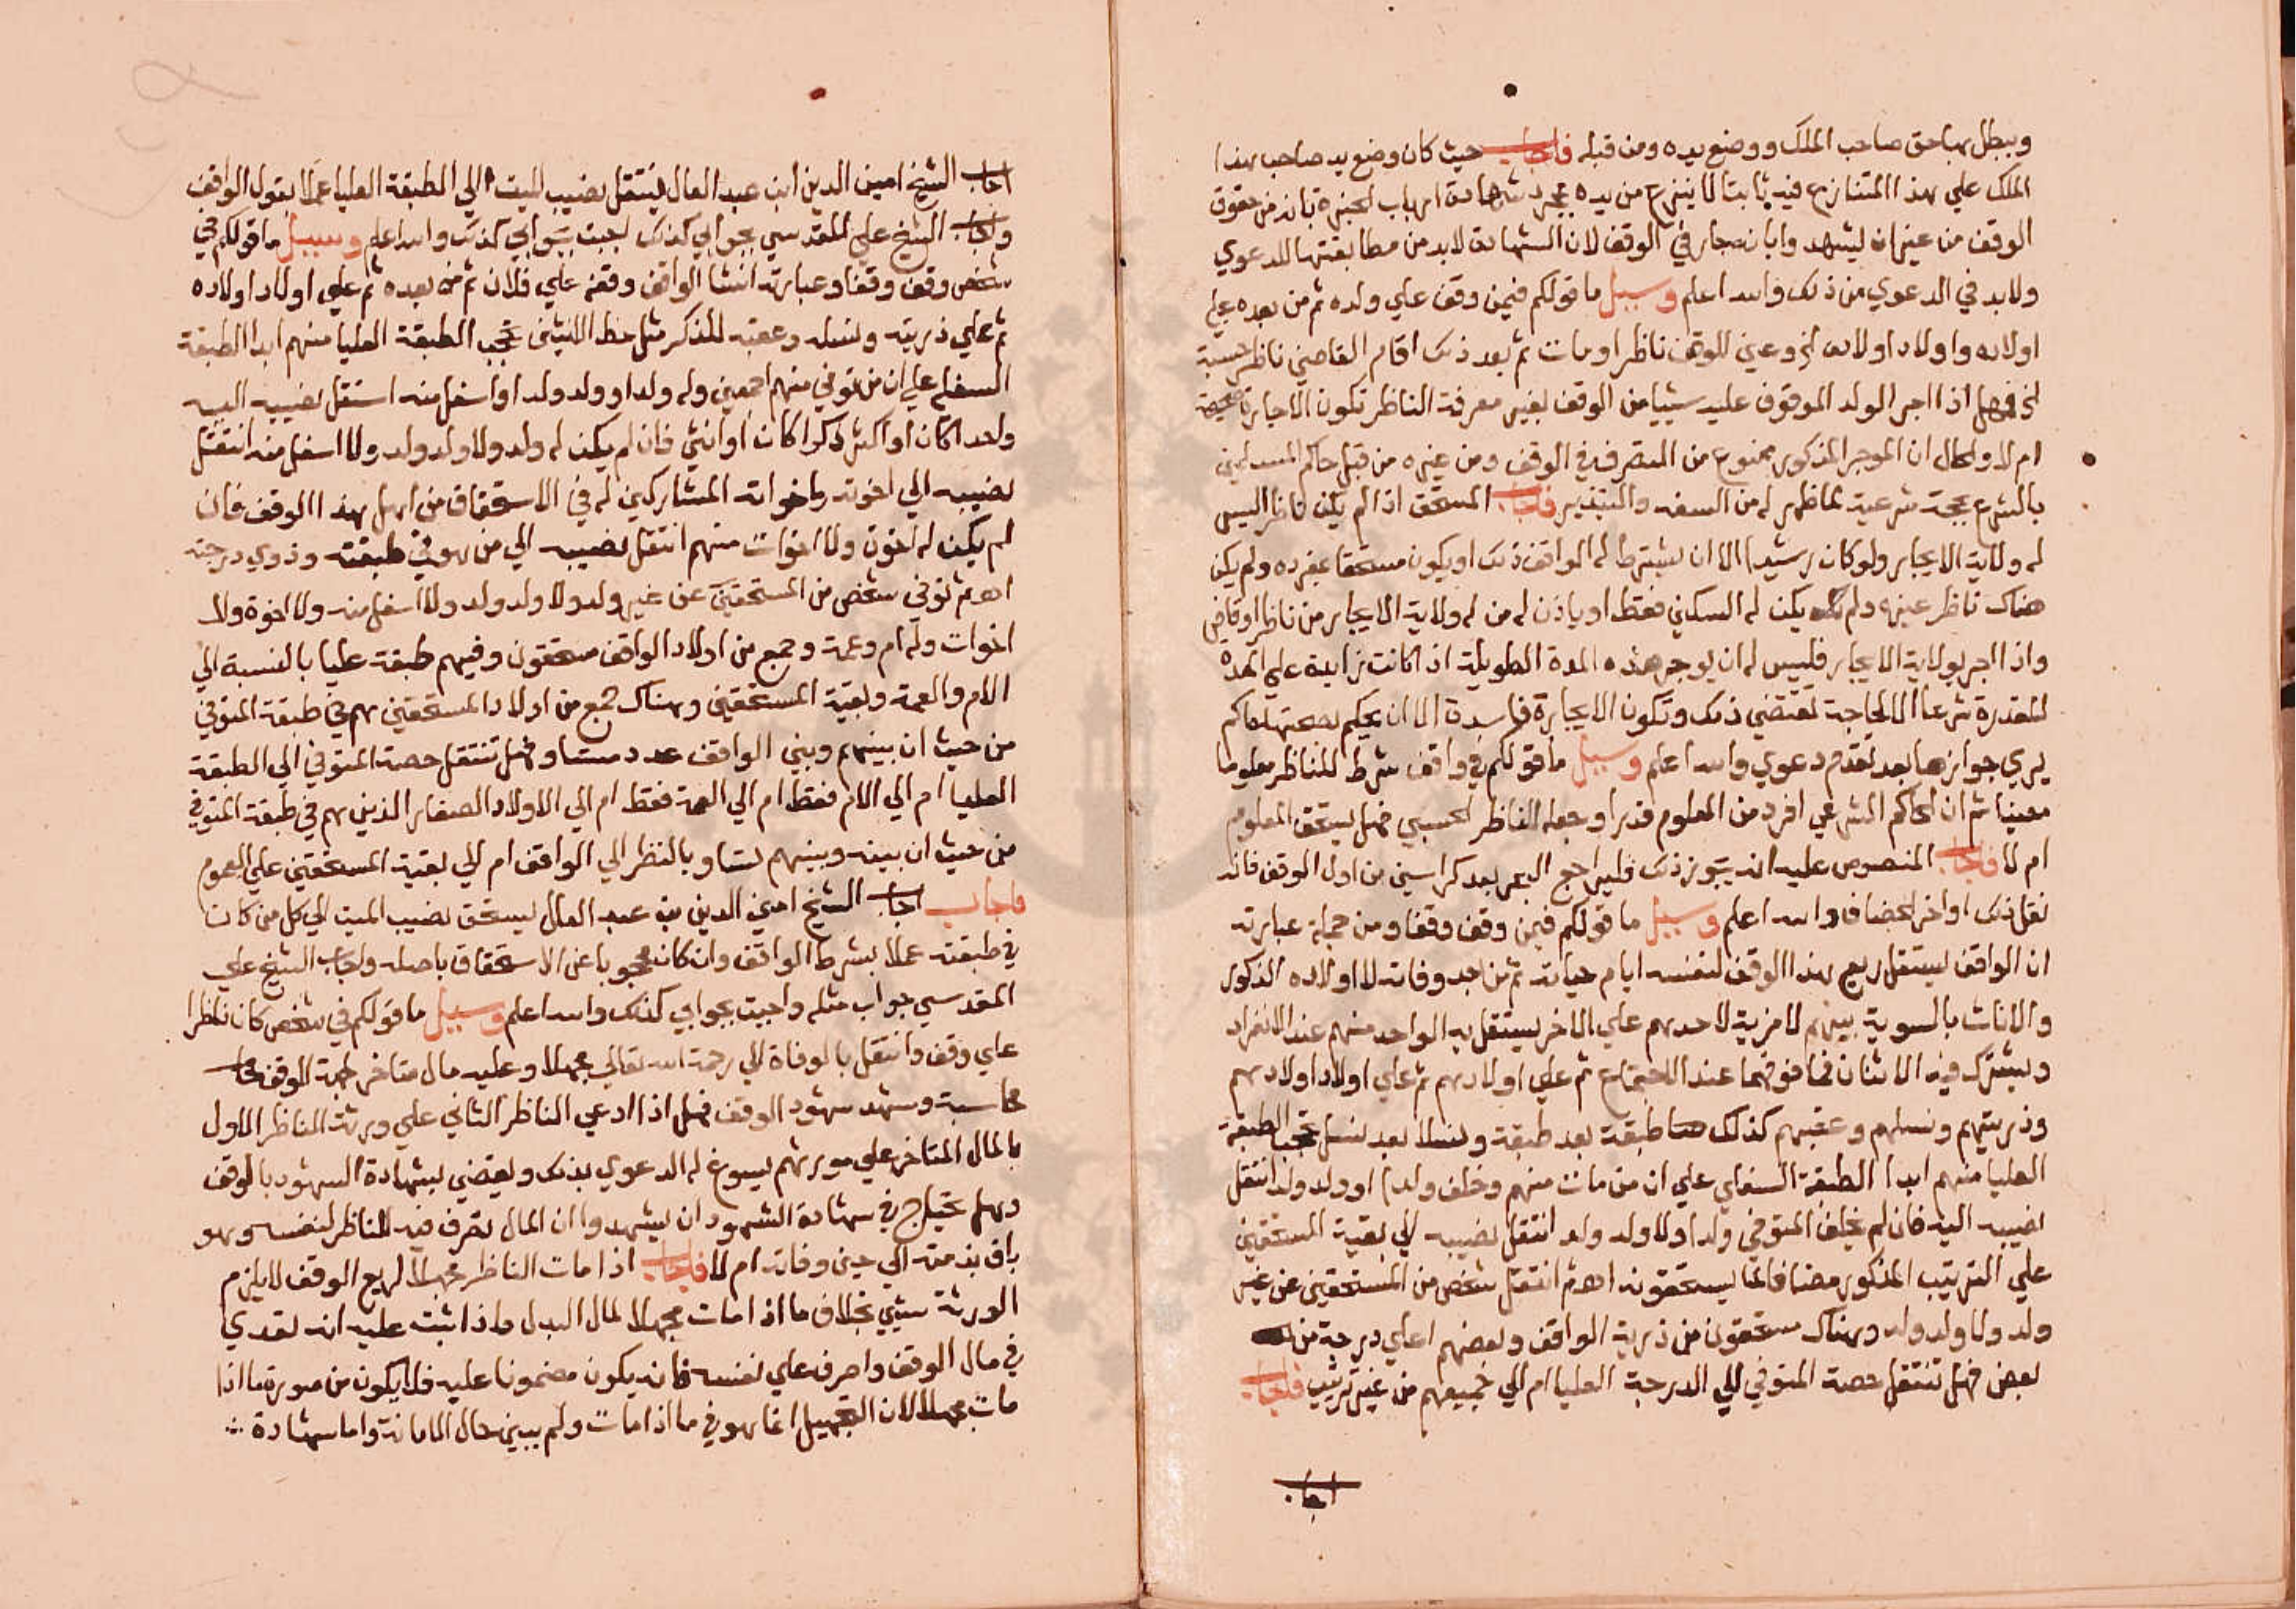 ويبطل بها حق صاحب الملك ووضع يده ومن قبله فاجاب حيث كان وضع يد صاحب هذا
الملك علي هذا المتنازع فيه ثابتا لا ينزع من يده بمجرد شهادة ارباب الخبرة بانه من حقوق
الوقف من غير ان يشهدوا بانه جار في الوقف لان الشهادة لابد من مطابقتها للدعوي
ولابد في الدعوي من ذلك والله اعلم وسييل ما قولكم فيمن وقف علي ولده ثم من بعده علي
اولاده واولاد اولاده الخ وعين للوقف ناظرا ومات ثم بعد ذلك اقام القاضي ناظر حسبة
الخ فهل اذا اجر الولد الموقوف عليه شييا من الوقف بغير معرفة الناظر تكون الاجارة صحيحة
ام لا والحال ان الموجر المذكور ممنوع من التصرف في الوقف ومن غيره من قبل حاكم المسلمين
بالشرع بحجة شرعية لما ظهر له من السفه والتبذير فاجاب المستحق اذا لم يكن ناظرا ليس
له ولاية الايجار ولو كان رشيدا الا ان يشترط له الواقف ذلك او يكون مستحقا بمفرده ولم يكن
هناك ناظر غيره ولم يكن له السكني فقط او ياذن له من له ولاية الايجار من ناظر او قاض
واذا اجر بولاية الايجار فليس له ان يوجر هذه المدة الطويلة اذا كانت زايدة علي المدة
المقدرة شرعا الا لحاجة تقتضي ذلك وتكون الايجارة فاسدة الا ان يحكم بصحتها حاكم
يري جوازها بعد تقدم دعوي والله اعلم وسييل ما قولكم في واقف شرط للناظر معلوما
معينا ثم ان الحاكم الشرعي افرد من المعلوم قدرا وجعله للناظر الحسبي فهل يستحق المعلوم
ام لا فاجاب المنصوص عليه انه يجوز ذلك فليراجع البحر بعد كراسين من اول الوقف فانه
نقل ذلك اواخر الخصاف والله اعلم وسييل ما قولكم فيمن وقف وقفا ومن جملة عبارته
ان الواقف يستغل ريع هذا الوقف لنفسه ايام حياته ثم من بعد وفاته لاولاده الذكور
والاناث بالسوية بينهم لا مزية لاحدهم علي الاخر يستقل به الواحد منهم عند الانفراد
ويشترك فيه الاثنان فما فوقهما عند الاجتماع ثم علي اولادهم ثم علي اولاد اولادهم
وذريتهم ونسلهم وعقبهم كذلك طبقة بعد طبقة ونسلا بعد نسل تحجب الطبقة
العليا منهم ابدا الطبقة السفلي علي ان من مات منهم وخلف ولدا او ولد ولد انتقل
نصيبه اليه فان لم يخلف المتوفي ولدا ولا ولد ولد انتقل نصيبه الي بقية المستحقين
علي الترتيب المذكور مضافا لما يستحقونه اهـ ثم انتقل شخص من المستحقين عن غير
ولد ولا ولد ولد وهناك مستحقون من ذرية الواقف وبعضهم اعلي درجة من
بعض فهل تنتقل حصة المتوفي الي الدرجة العليا ام الي جميعهم من غير ترتيب فاجاب
اجاب
اجاب الشيخ امين الدين ابن عبد العال ينتقل نصيب الميت الي الطبقة العليا عملا بقول الواقف
واجاب الشيخ علي المقدسي بجوابي كذلك اجبت بجوابي كذلك والله اعلم وسييل ما قولكم في
شخص وقف وقفا وعبارته انشا الواقف وقفه علي فلان ثم من بعده ثم علي اولاد اولاده
ثم علي ذريته ونسله وعقبه للذكر مثل حظ الانثيين تحجب الطبقة العليا منهم ابدا الطبقة
السفلي علي ان من توفي منهم اجمعين وله ولد او ولد ولد او اسفل منه استقل نصيبه اليه
واحدا كان او اكثر ذكرا كان او انثي فان لم يكن له ولد ولا ولد ولد ولا اسفل منه انتقل
نصيبه الي اخوته واخواته المشاركين له في الاستحقاق من اهل هذا الوقف فان
لم يكن له اخوة ولا اخوات منهم انتقل نصيبه الي من هو في طبقته وذوي درجته
اهـ ثم توفي شخص من المستحقين عن غير ولد ولا ولد ولد ولا اسفل منه ولا اخوة ولا
اخوات وله ام وعمة وجمع من اولاد الواقف مستحقون وفيهم طبقة عليا بالنسبة الي
الام والعمة وبقية المستحقين وهناك جمع من اولاد المستحقين هم في طبقة المتوفي
من حيث ان بينهم وبين الواقف عدد مستاو فهل تنتقل حصة المتوفي الي الطبقة
العليا ام الي الام فقط ام الي العمة فقط ام الي الاولاد الصغار الذين هم في طبقة المتوفي
من حيث ان بينه وبينهم تساو بالنظر الي الواقف ام الي بقية المستحقين علي العموم
فاجاب اجاب الشيخ امين الدين بن عبد العال يستحق نصيب الميت الي كل من كان
في طبقته عملا بشرط الواقف وان كان محجوبا عن الاستحقاق باصله واجاب الشيخ علي
المقدسي جواب مثله واجبت بجوابي كذلك والله اعلم وسييل ما قولكم في شخص كان ناظرا
علي وقف وانتقل بالوفاة الي رحمة الله تعالي مجهلا وعليه مال متاخر لجهة الوقف
محاسبة وشهد شهود الوقف فهل اذا ادعي الناظر الثاني علي ورثة الناظر الاول
بالمال المتاخر علي مورثهم يسوغ له الدعوي بذلك ويقضي بشهادة الشهود بالوقف
وهل يحتاج في شهادة الشهود ان يشهدوا ان المال تصرف فيه الناظر لنفسه وهو
باق بذمته الي حين وفاته ام لا فاجاب اذا مات الناظر مجهلا لريع الوقف لا يلزم
الورثة شيي بخلاف ما اذا مات مجهلا لمال البدل واذا ثبت عليه انه تعدي
في مال الوقف واصرف علي نفسه فانه يكون مضمونا عليه فلا يكون من صورة ما اذا
مات مجهلا لان التجهيل انما هو في ما اذا مات ولم يبين حال الامانة واما شهادة